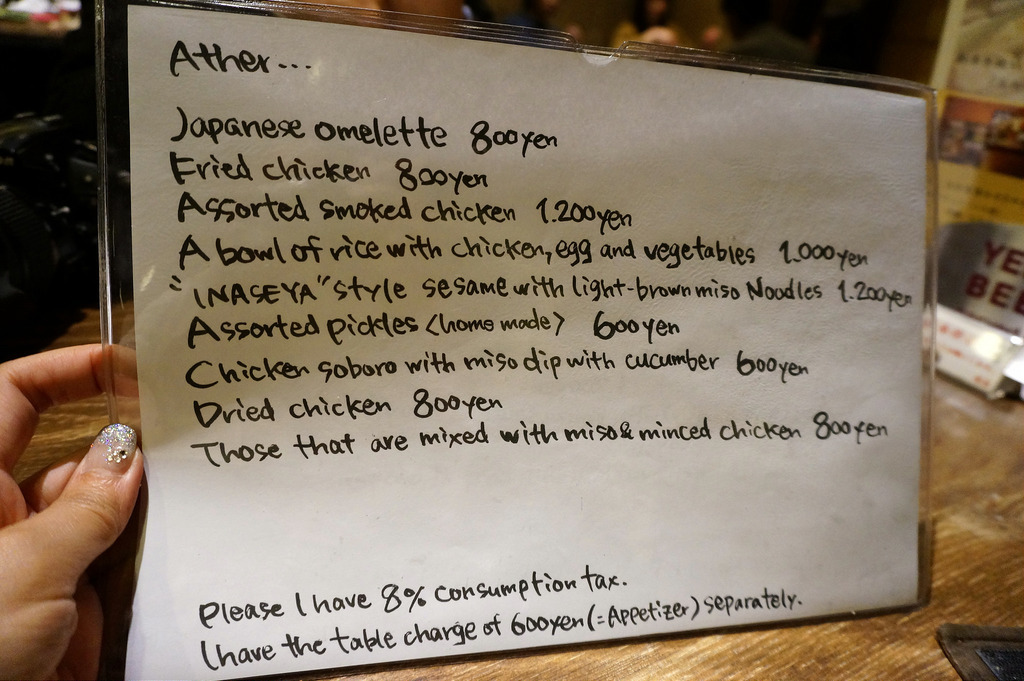 Ather...
Japanese omelette 800yen
Fried chicken 800yen
Assorted smoked chicken 1.200yen
A bowl of rice with chicken, egg and vegetables 1.000yen
"INASEYA" style sesame with light-brown miso Noodles 1.200yen
Assorted pickles <home made> 600yen
Chicken soboro with miso dip with cucumber 600yen
Dried chicken 800yen
Those that are mixed with miso & minced chicken 800yen
Please I have 8% consumption tax.
I have the table charge of 600yen (=Appetizer) separately.